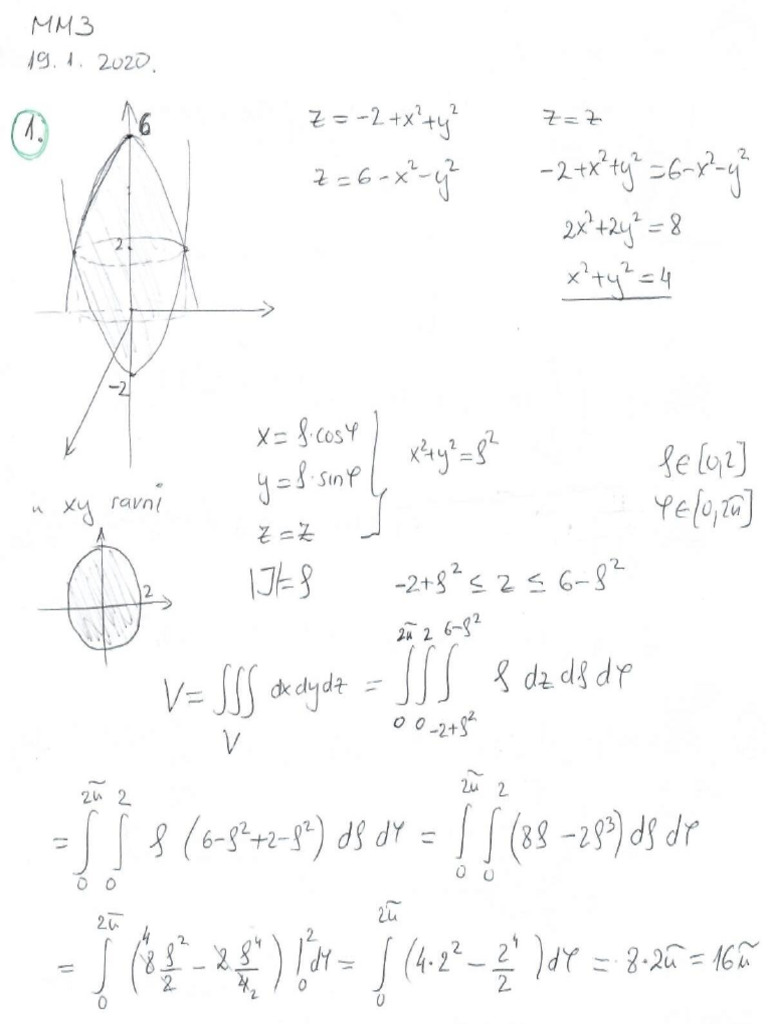 MM3
19. 1. 2020.
1.
6
2
-2
z = -2+x²+y²
z = 6-x²-y²
z = z
-2+x²+y² = 6-x²-y²
2x²+2y² = 8
x²+y² = 4
x = ρ·cosφ
y = ρ·sinφ
z = z
x²+y² = ρ²
|J| = ρ
ρ∈[0,2]
φ∈[0,2π]
-2+ρ² ≤ z ≤ 6-ρ²
u xy ravni
2
V = ∭_V dxdydz = ∫_0^{2π} ∫_0^2 ∫_{-2+ρ²}^{6-ρ²} ρ dz dρ dφ
= ∫_0^{2π} ∫_0^2 ρ (6-ρ²+2-ρ²) dρ dφ = ∫_0^{2π} ∫_0^2 (8ρ - 2ρ³) dρ dφ
= ∫_0^{2π} (⁴8 ρ²/2 - 2 ρ⁴/4₂) |_0^2 dφ = ∫_0^{2π} (4·2² - 2⁴/2) dφ = 8·2π = 16π